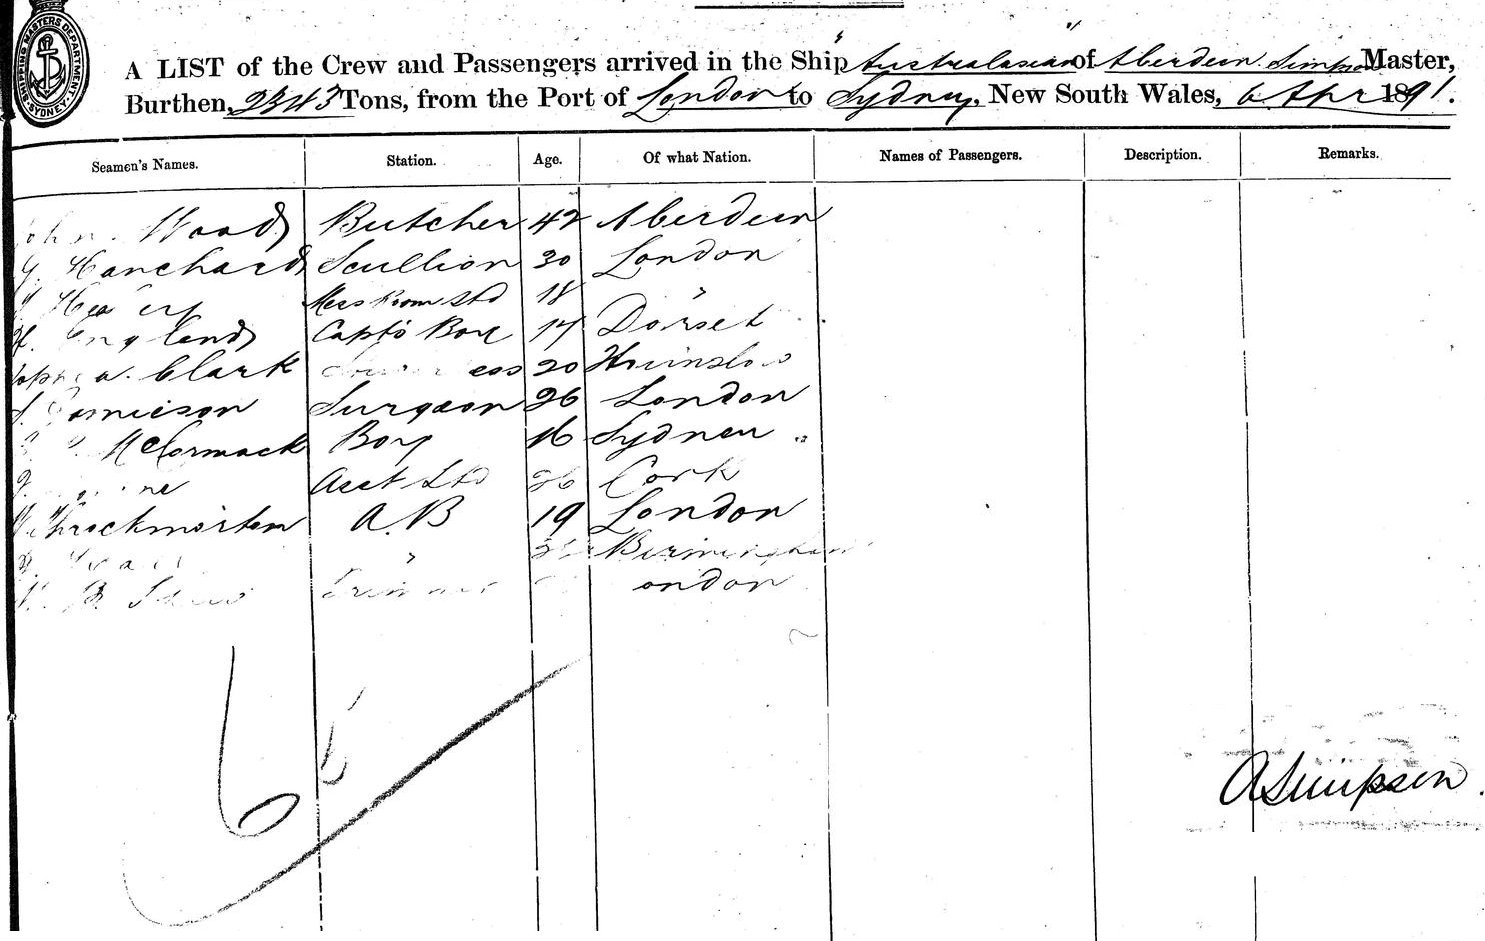 SHIPPING MASTERS DEPARTMENT SYDNEY
A LIST of the Crew and Passengers arrived in the Ship "Australasian" of Aberdeen. Simpson Master,
Burthen, 2343 Tons, from the Port of London to Sydney, New South Wales, 6 Apr 1891.
Seamen's Names. Station. Age. Of what Nation. Names of Passengers. Description. Remarks.
John Wood Butcher 42 Aberdeen
Hanchard Scullion 30 London
Mess Room Std 18 "
H. England Capt's Boy 17 Dorset
Clark 20
Jamieson Surgeon 26 London
McCormack Boy 16 Sydney
Asst Std 26 Cork
Throckmorton A.B 19 London
" Birmingham
Trimmer London
65
A Simpson